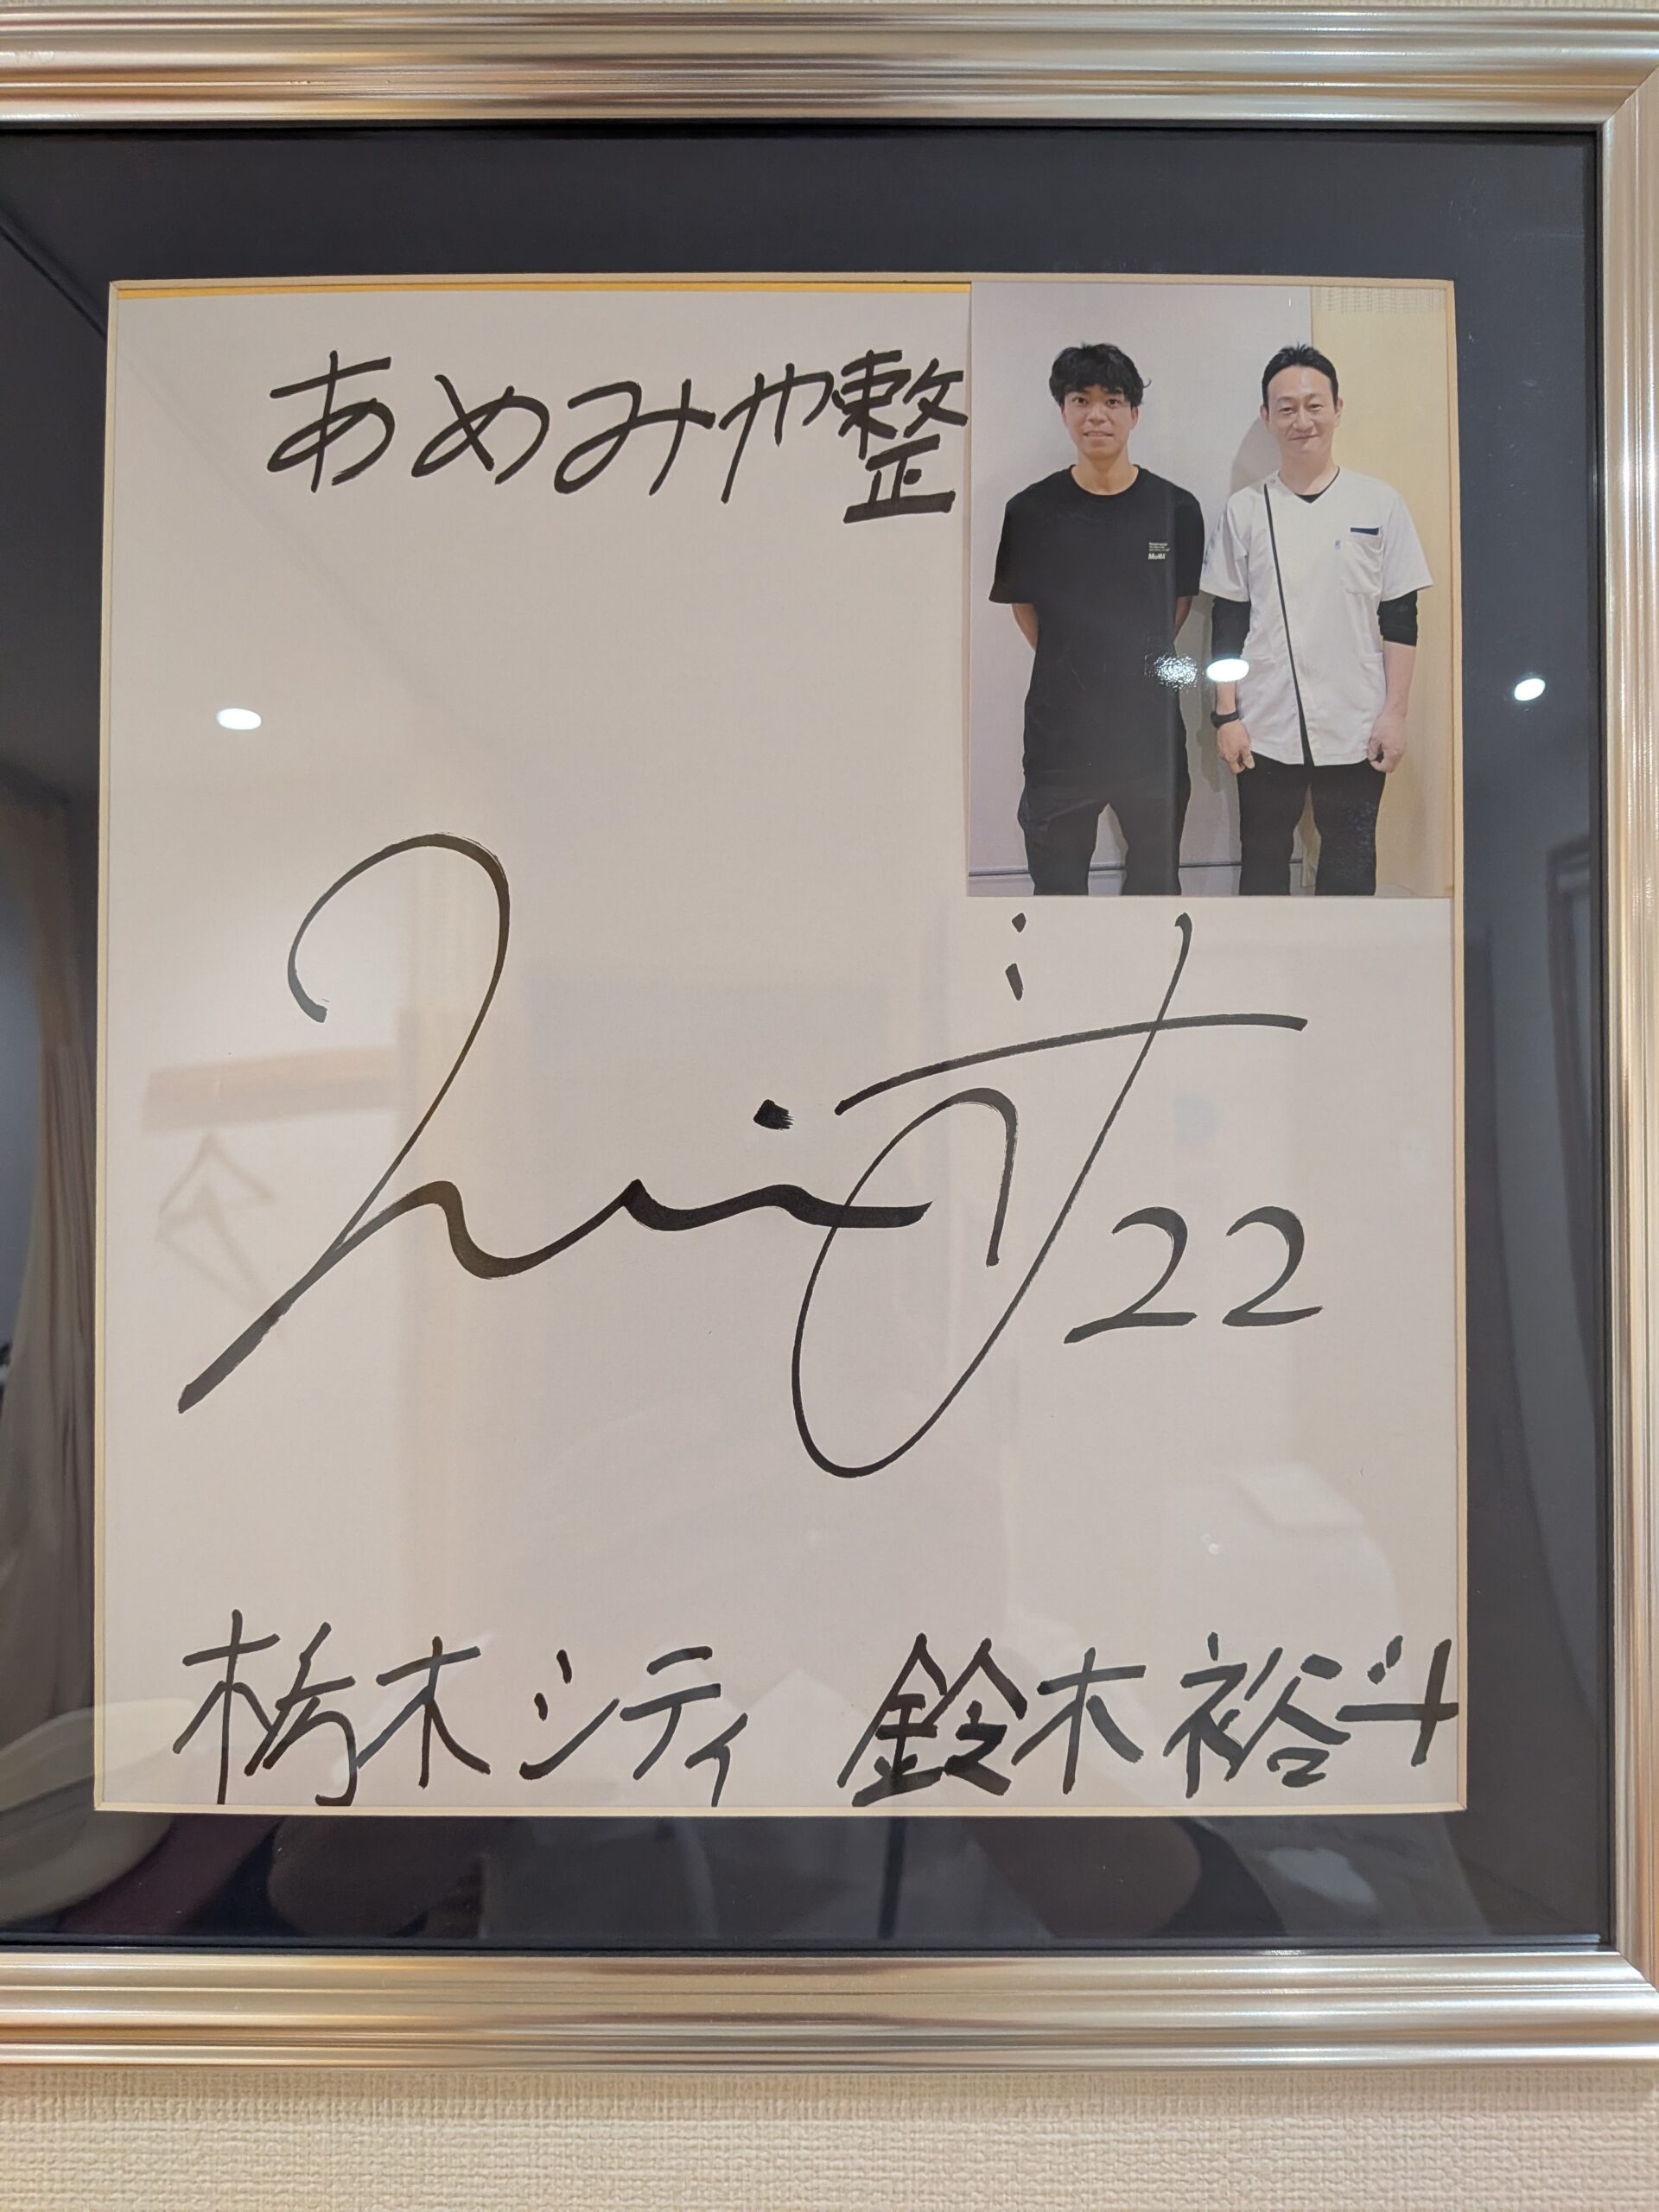 あめみや整
22
栃木シティ 鈴木裕斗